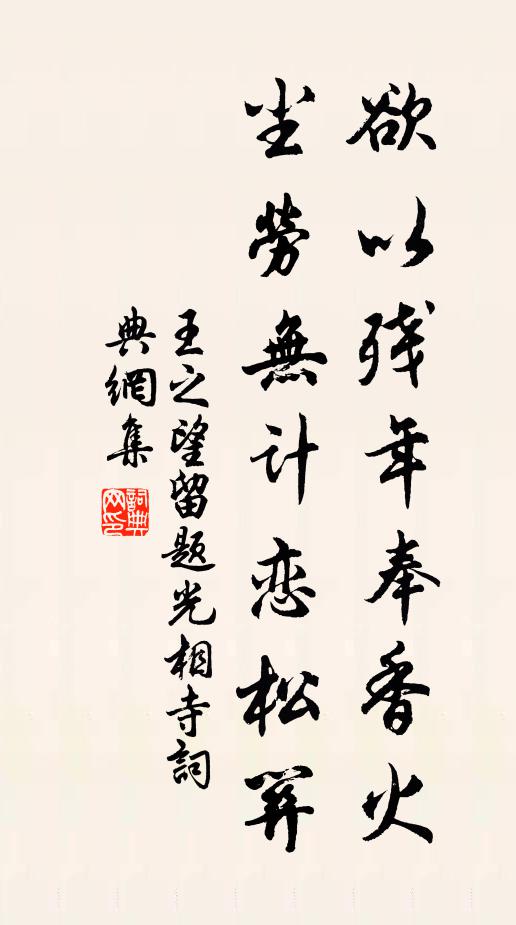 欲以残年奉香火
尘勞無计恋松関
王之望留题光相寺詞
典網集
詞典
网印